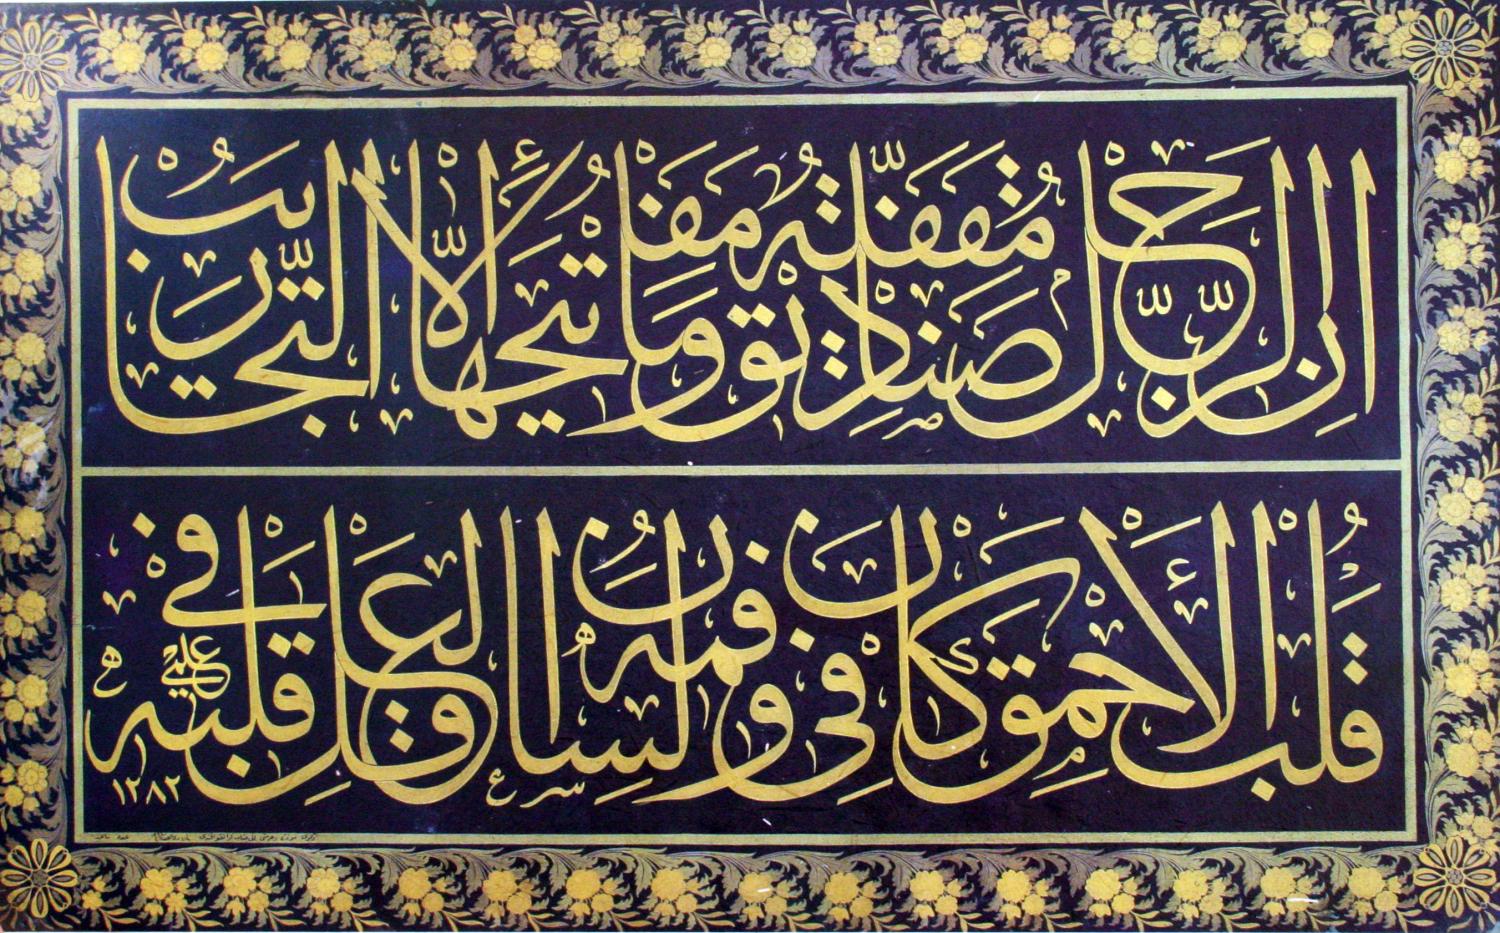 ان الرجال صناديق مقفلة وما مفاتيحها الا التجاريب
قلب الأحمق كان في فمه ولسان العاقل في قلبه
١٢٨٢